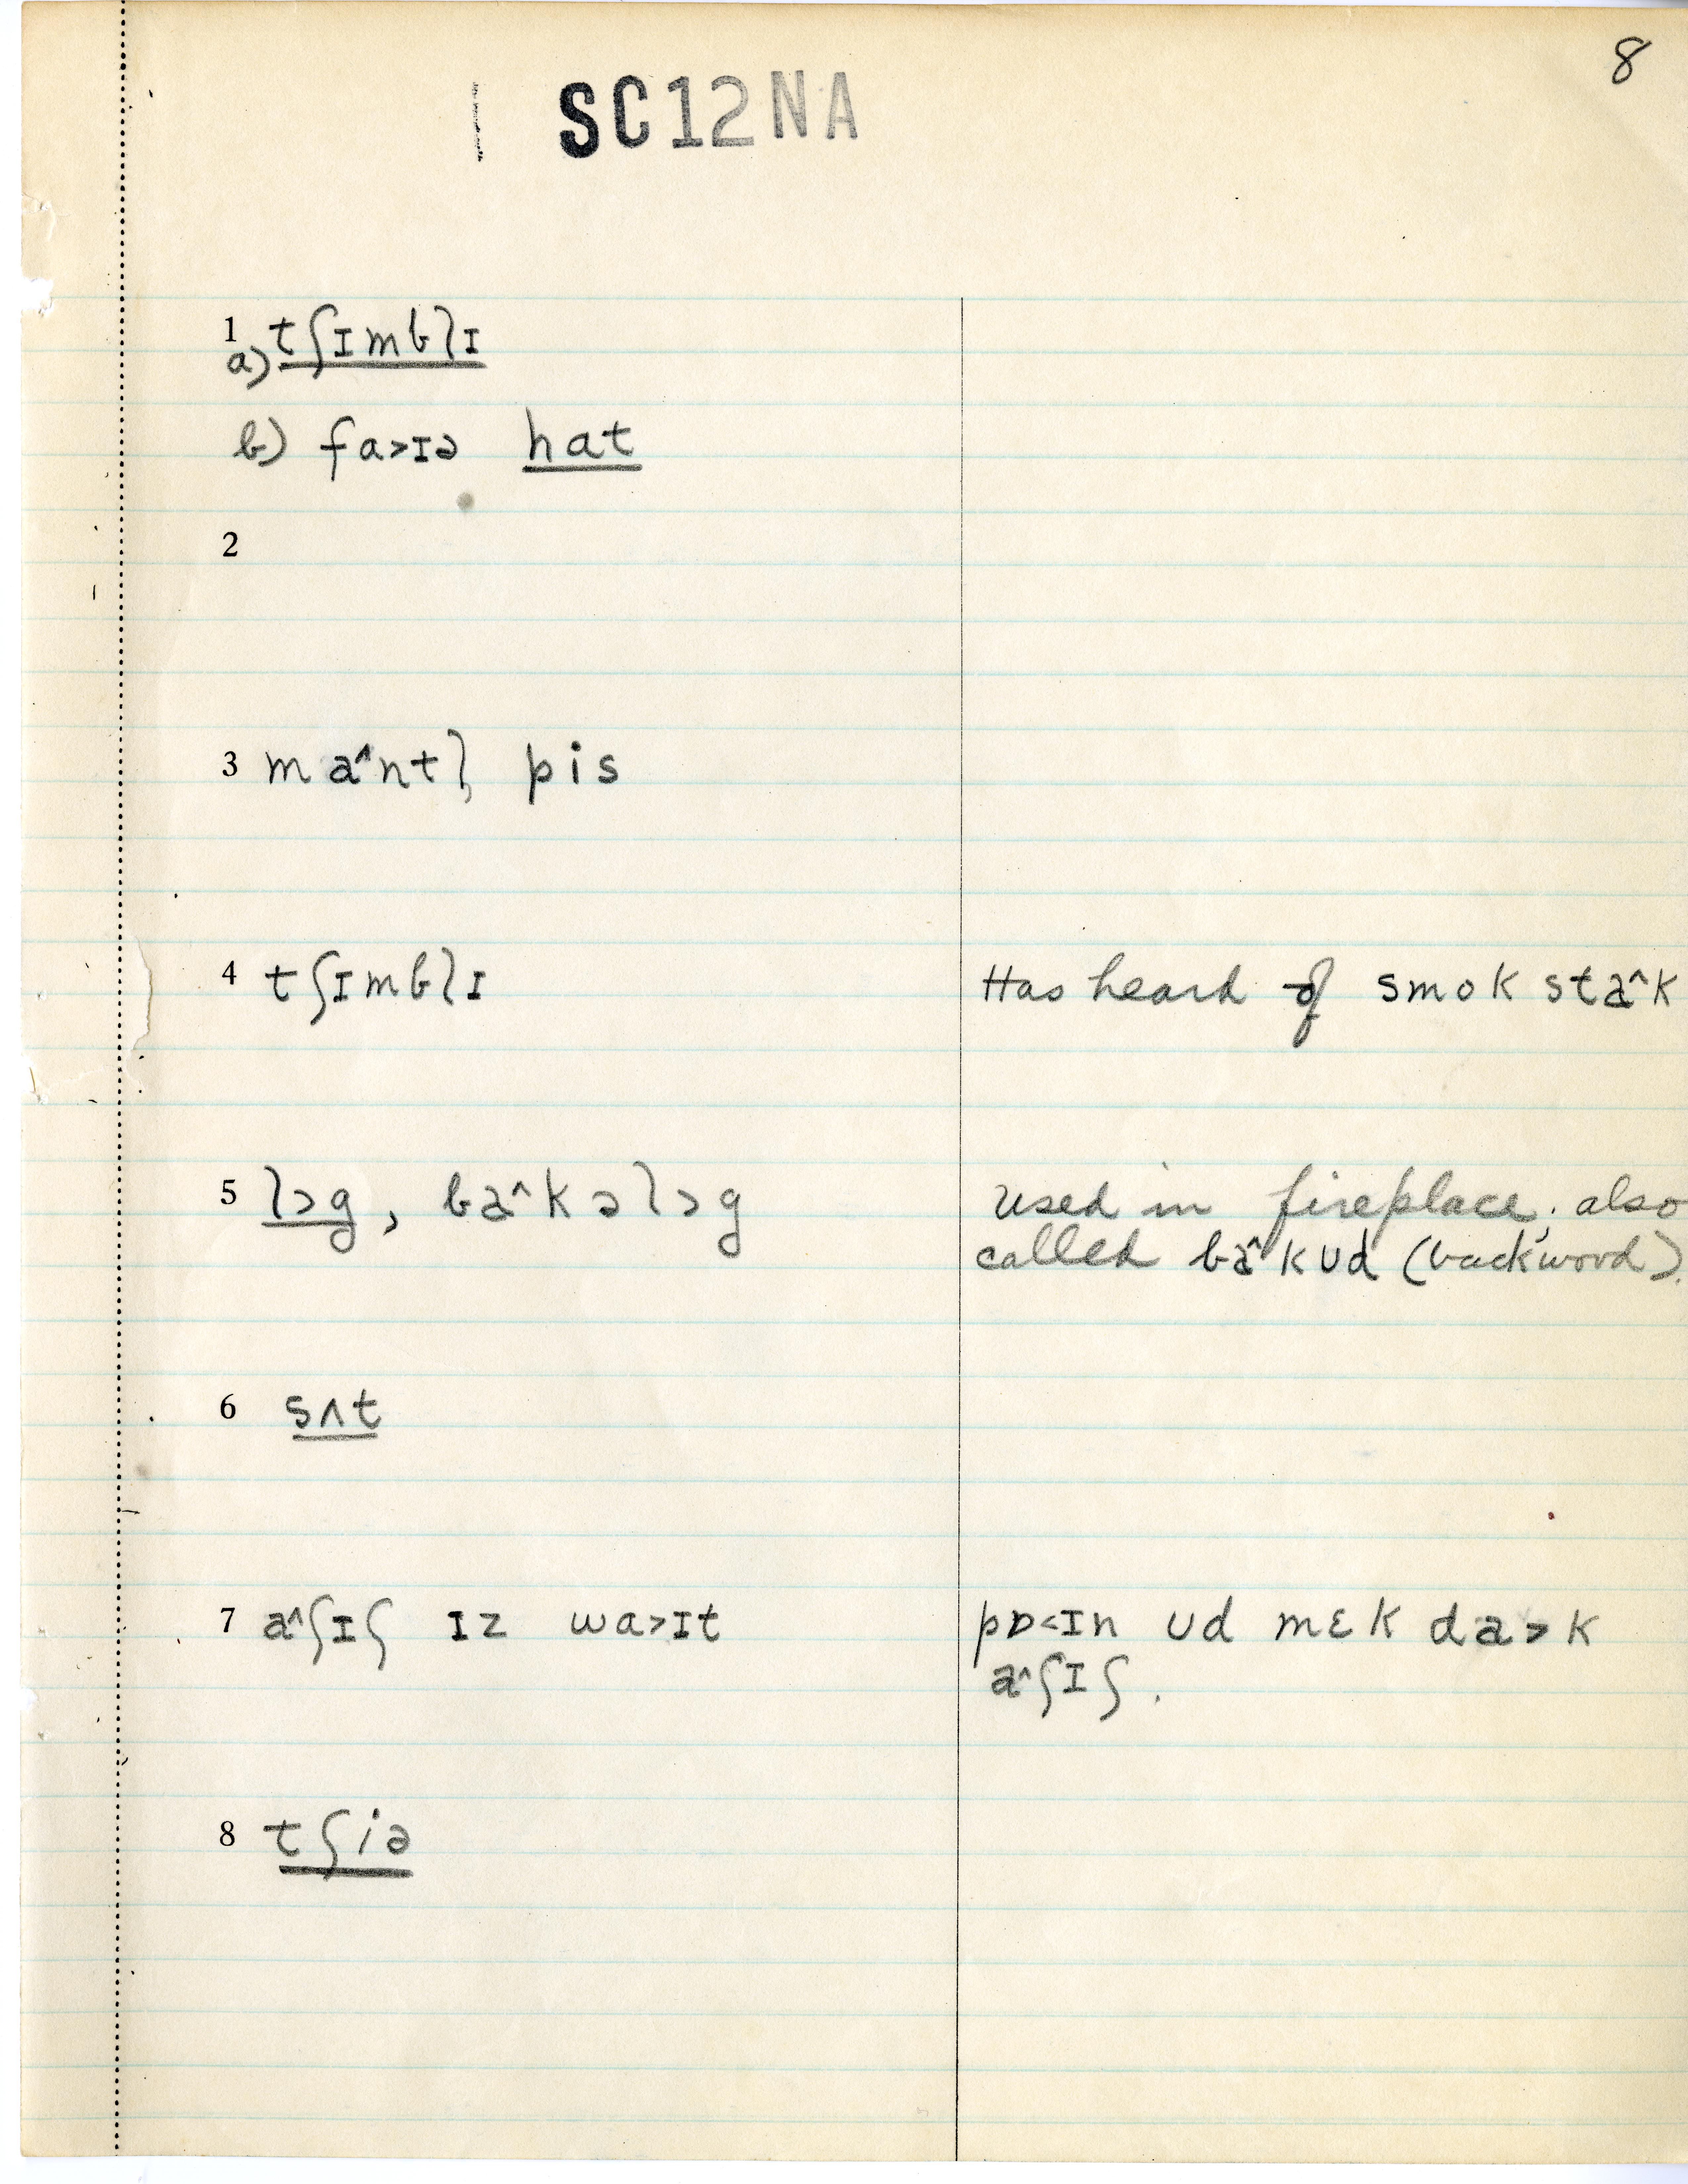 8
SC12NA
1
a) tʃɪmblɪ
b) fa>ɪə hat
2
3 ma^ntl̩ pis
4 tʃɪmblɪ Has heard of smok sta^k
5 lɔg, ba^kəlɔg used in fireplace; also
called ba^kʊd (backwood).
6 sʌt
7 a^ʃɪʃ ɪz wa>ɪt pɒ<ɪn ʊd mɛk da>k
a^ʃɪʃ.
8 tʃiə